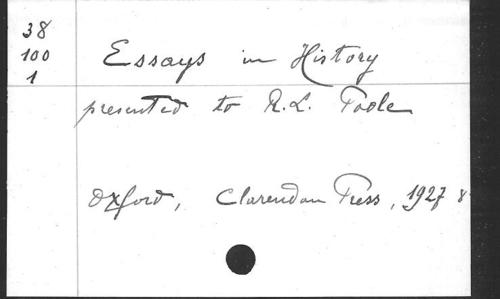 38
100
1
Essays in History
presented to R.L. Poole
Oxford, Clarendon Press, 1927 8